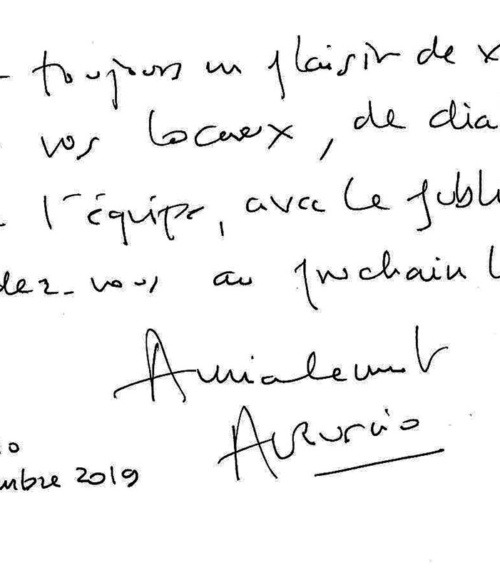 toujours un plaisir de
vos locaux, de dia
l'équipe, avec le publi
dez-vous au prochain l
Amicalement
mbre 2019